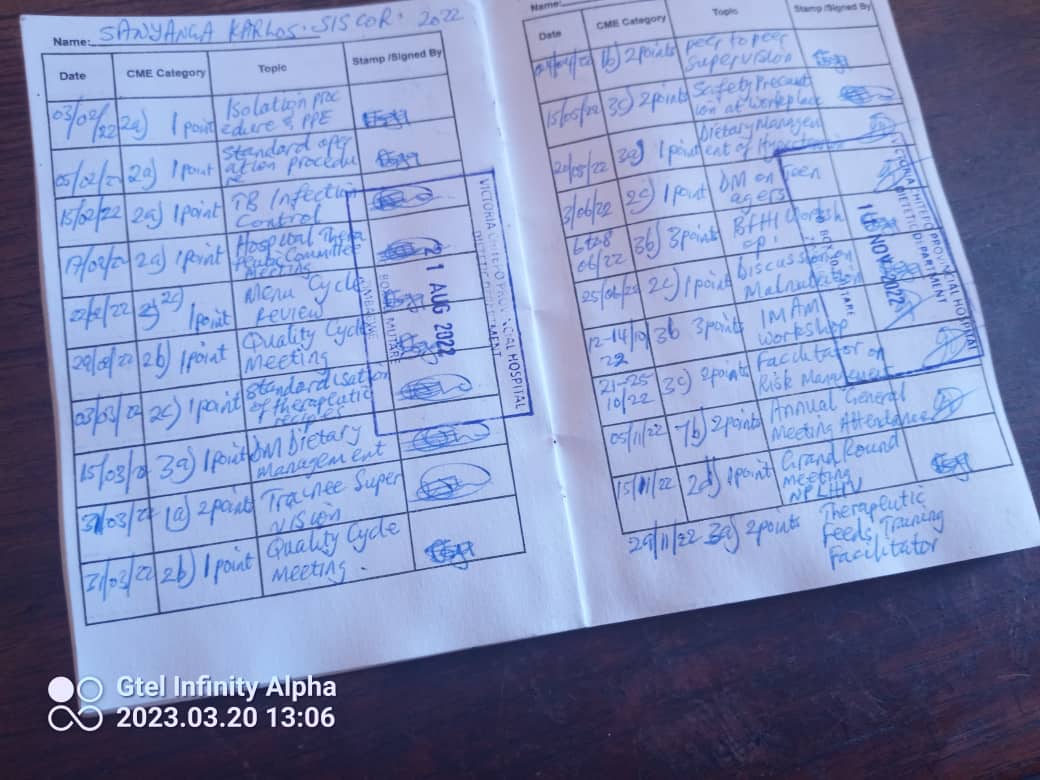 Name: SANYANGA KARLOS. SISCOR. 2022
Date CME Category Topic Stamp /Signed By
03/02/22 2a) 1 point Isolation proc
edure & PPE
05/02/22 2a) 1 point Standard oper
ation procedu
15/02/22 2a) 1 point TB Infection
Control
17/02/22 2a) 1 point Hospital Thera
peutic Committee
Meeting
22/02/22 2c) 1 point Menu Cycle
Review
2b) 1 point Quality Cycle
Meeting
03/03/22 2c) 1 point Standardisation
of therapeutic
recipes
15/03/22 3a) 1 point DM Dietary
management
31/03/22 1a) 2 points Trainee Super
vision
31/03/22 2b) 1 point Quality Cycle
meeting.
VICTORIA CHITEPO PROVINCIAL HOSPITAL
DIETETIC DEPARTMENT
21 AUG 2022
MUTARE
Name:
Date CME Category Topic Stamp /Signed By
1b) 2 points peer to peer
supervision
15/05/22 3c) 2 points Safety Precaut
ion at workplace
20/05/22 3a) 1 point Dietary Managem
ent of
3/06/22 2c) 1 point DM on teen
agers
6 to 8
06/22 3b) 3 points BFHI Worksh
op
2c) 1 point Discussion on
Malnutrition
12-14/10
22 3b 3 points IMAM
Workshop
21-25
10/22 3c) 2 points Facilitator on
Risk Management
05/11/22 7b) 2 points Annual General
Meeting Attendance
15/11/22 2d) 1 point Grand Round
meeting
29/11/22 3a) 2 points Therapeutic
Feeds Training
Facilitator
VICTORIA CHITEPO PROVINCIAL HOSPITAL
DIETETIC DEPARTMENT
NOV 2022
MUTARE
Gtel Infinity Alpha
2023.03.20 13:06